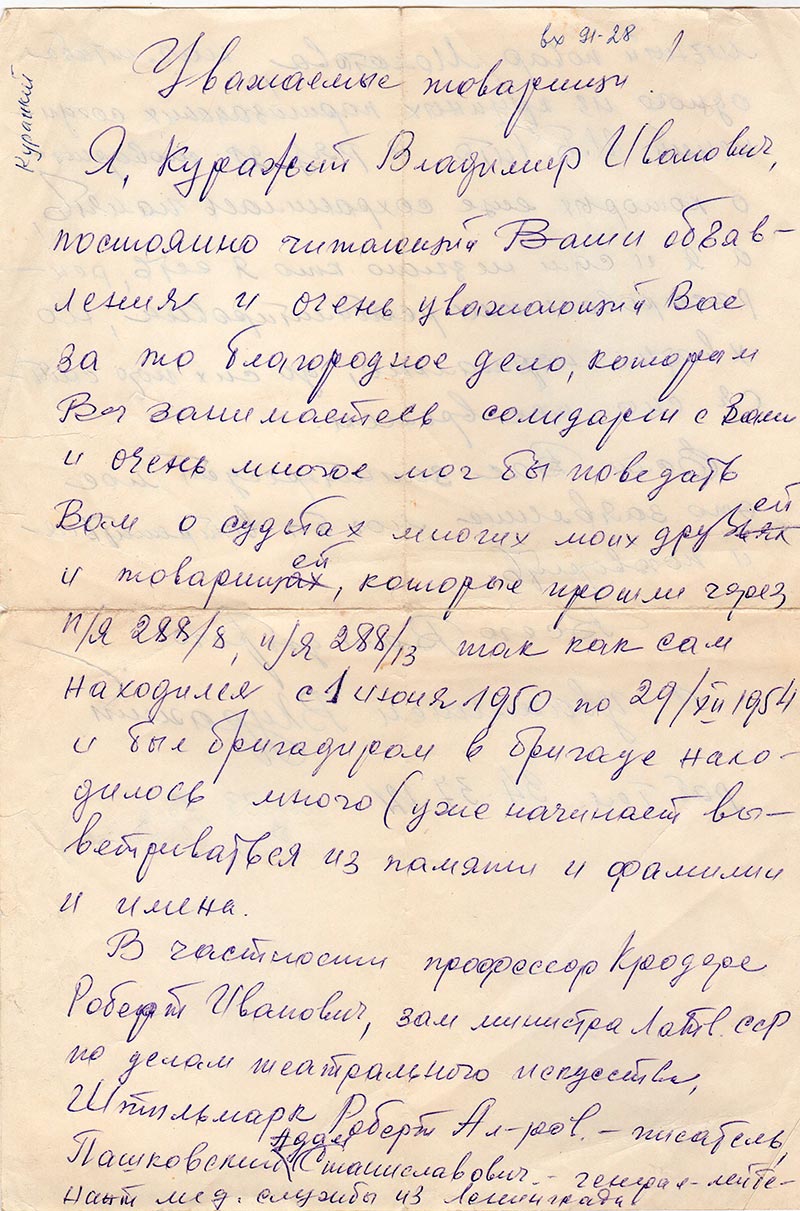 вх 91-28
1
Куражий
Уважаемые товарищи
Я, Куражий Владимир Иванович,
постоянно читающий Ваши объяв-
ления и очень уважающий Вас
за то благородное дело, которым
Вы занимаетесь солидарен с Вами
и очень многое мог бы поведать
Вам о судьбах многих моих друзьях ей
и товарищах ей, которые прошли через
п/я 288/8, п/я 288/13 так как сам
находился с 1 июня 1950 по 29/XII 1954
и был бригадиром в бригаде нахо-
дилось много (уже начинает вы-
ветриваться из памяти и фамилии
и имена.
В частности профессор Кродере
Роберт Иванович, зам министра Латв. ССР
по делам театрального искусства,
Штильмарк Роберт Ал-ров. – писатель,
Пашковский Адам Станиславович – генерал-лейте-
нант мед. службы из Ленинграда